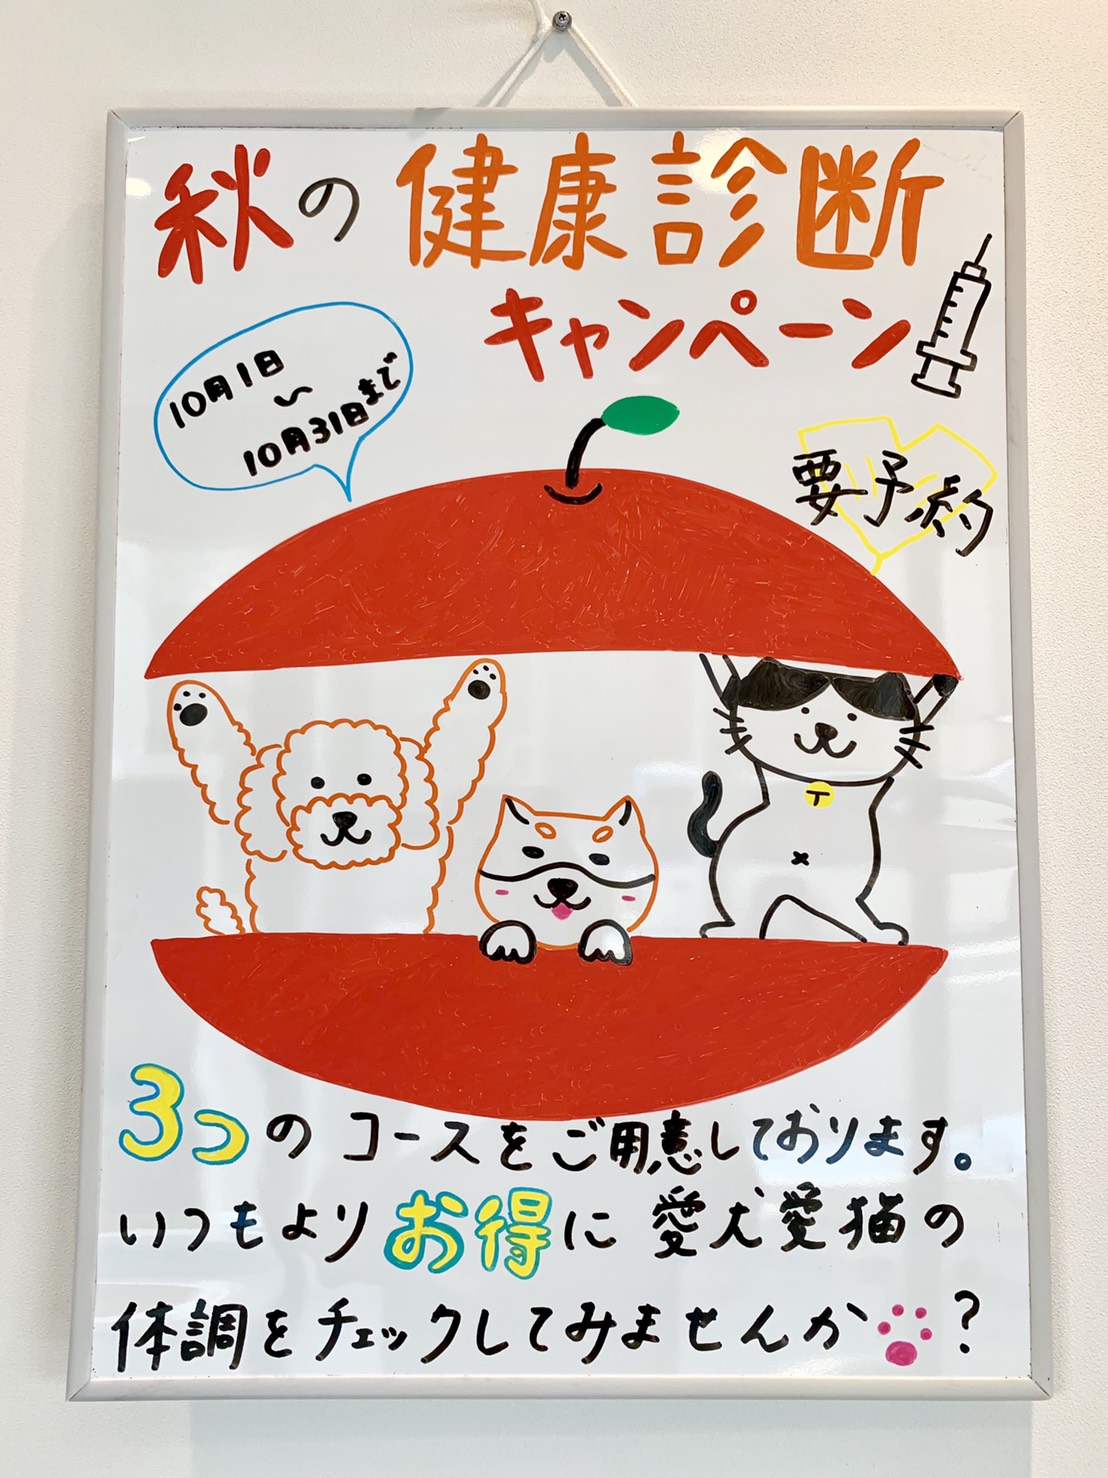 秋の健康診断
キャンペーン
10月1日
〜
10月31日まで
要予約
3つのコースをご用意しております。
いつもよりお得に愛犬愛猫の
体調をチェックしてみませんか?